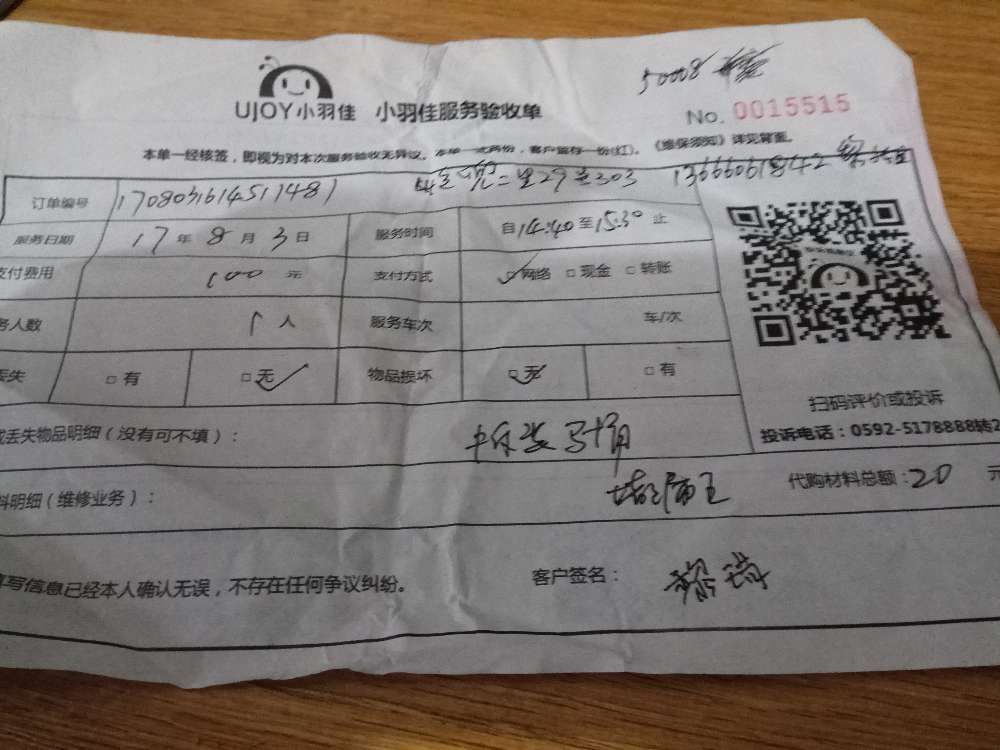 50008
UJOY小羽佳 小羽佳服务验收单
No. 0015515
本单一经核签，即视为对本次服务验收无异议。本单一式两份，客户留存一份(红)。《维保须知》详见背面。
二里29号303 13666061842
订单编号 1708031614517481
服务日期 17年8月3日 服务时间 自14:40至15:30止
支付费用 100元 支付方式 □网络 □现金 □转账
务人数 1人 服务车次 车/次
丢失 □有 □无 物品损坏 □无 □有
扫码评价或投诉
投诉电话：0592-5178888转2
或丢失物品明细（没有可不填）：
拆装马桶
料明细（维修业务）： 代购材料总额：20 元
填写信息已经本人确认无误，不存在任何争议纠纷。 客户签名：